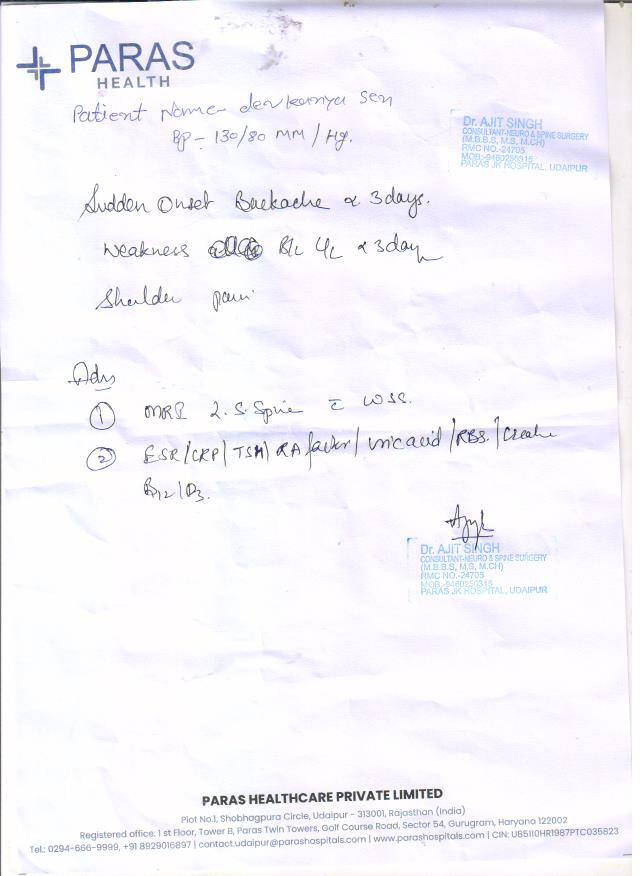 PARAS
HEALTH
Patient Name - devkanya sen
BP - 130/80 MM/Hg.
Dr. AJIT SINGH
CONSULTANT-NEURO & SPINE SURGERY
(M.B.B.S, M.S, M.CH)
RMC NO.-24705
MOB:-9460250315
PARAS JK HOSPITAL, UDAIPUR
Sudden Onset Backache x 3days.
Weakness B/L L/L x 3day
Shoulder pain
Adv
① MRI L.S. Spine c̄ WSS.
② ESR/CRP/TSH/RA factor/uric acid/RBS./Creatine
B12/D3.
Dr. AJIT SINGH
CONSULTANT-NEURO & SPINE SURGERY
(M.B.B.S, M.S, M.CH)
RMC NO.-24705
MOB:-9460250315
PARAS JK HOSPITAL, UDAIPUR
PARAS HEALTHCARE PRIVATE LIMITED
Plot No.1, Shobhagpura Circle, Udaipur - 313001, Rajasthan (India)
Registered office: 1 st Floor, Tower B, Paras Twin Towers, Golf Course Road, Sector 54, Gurugram, Haryana 122002
Tel.: 0294-666-9999, +91 8929016897 | contact.udaipur@parashospitals.com | www.parashospitals.com | CIN: U85110HR1987PTC035823